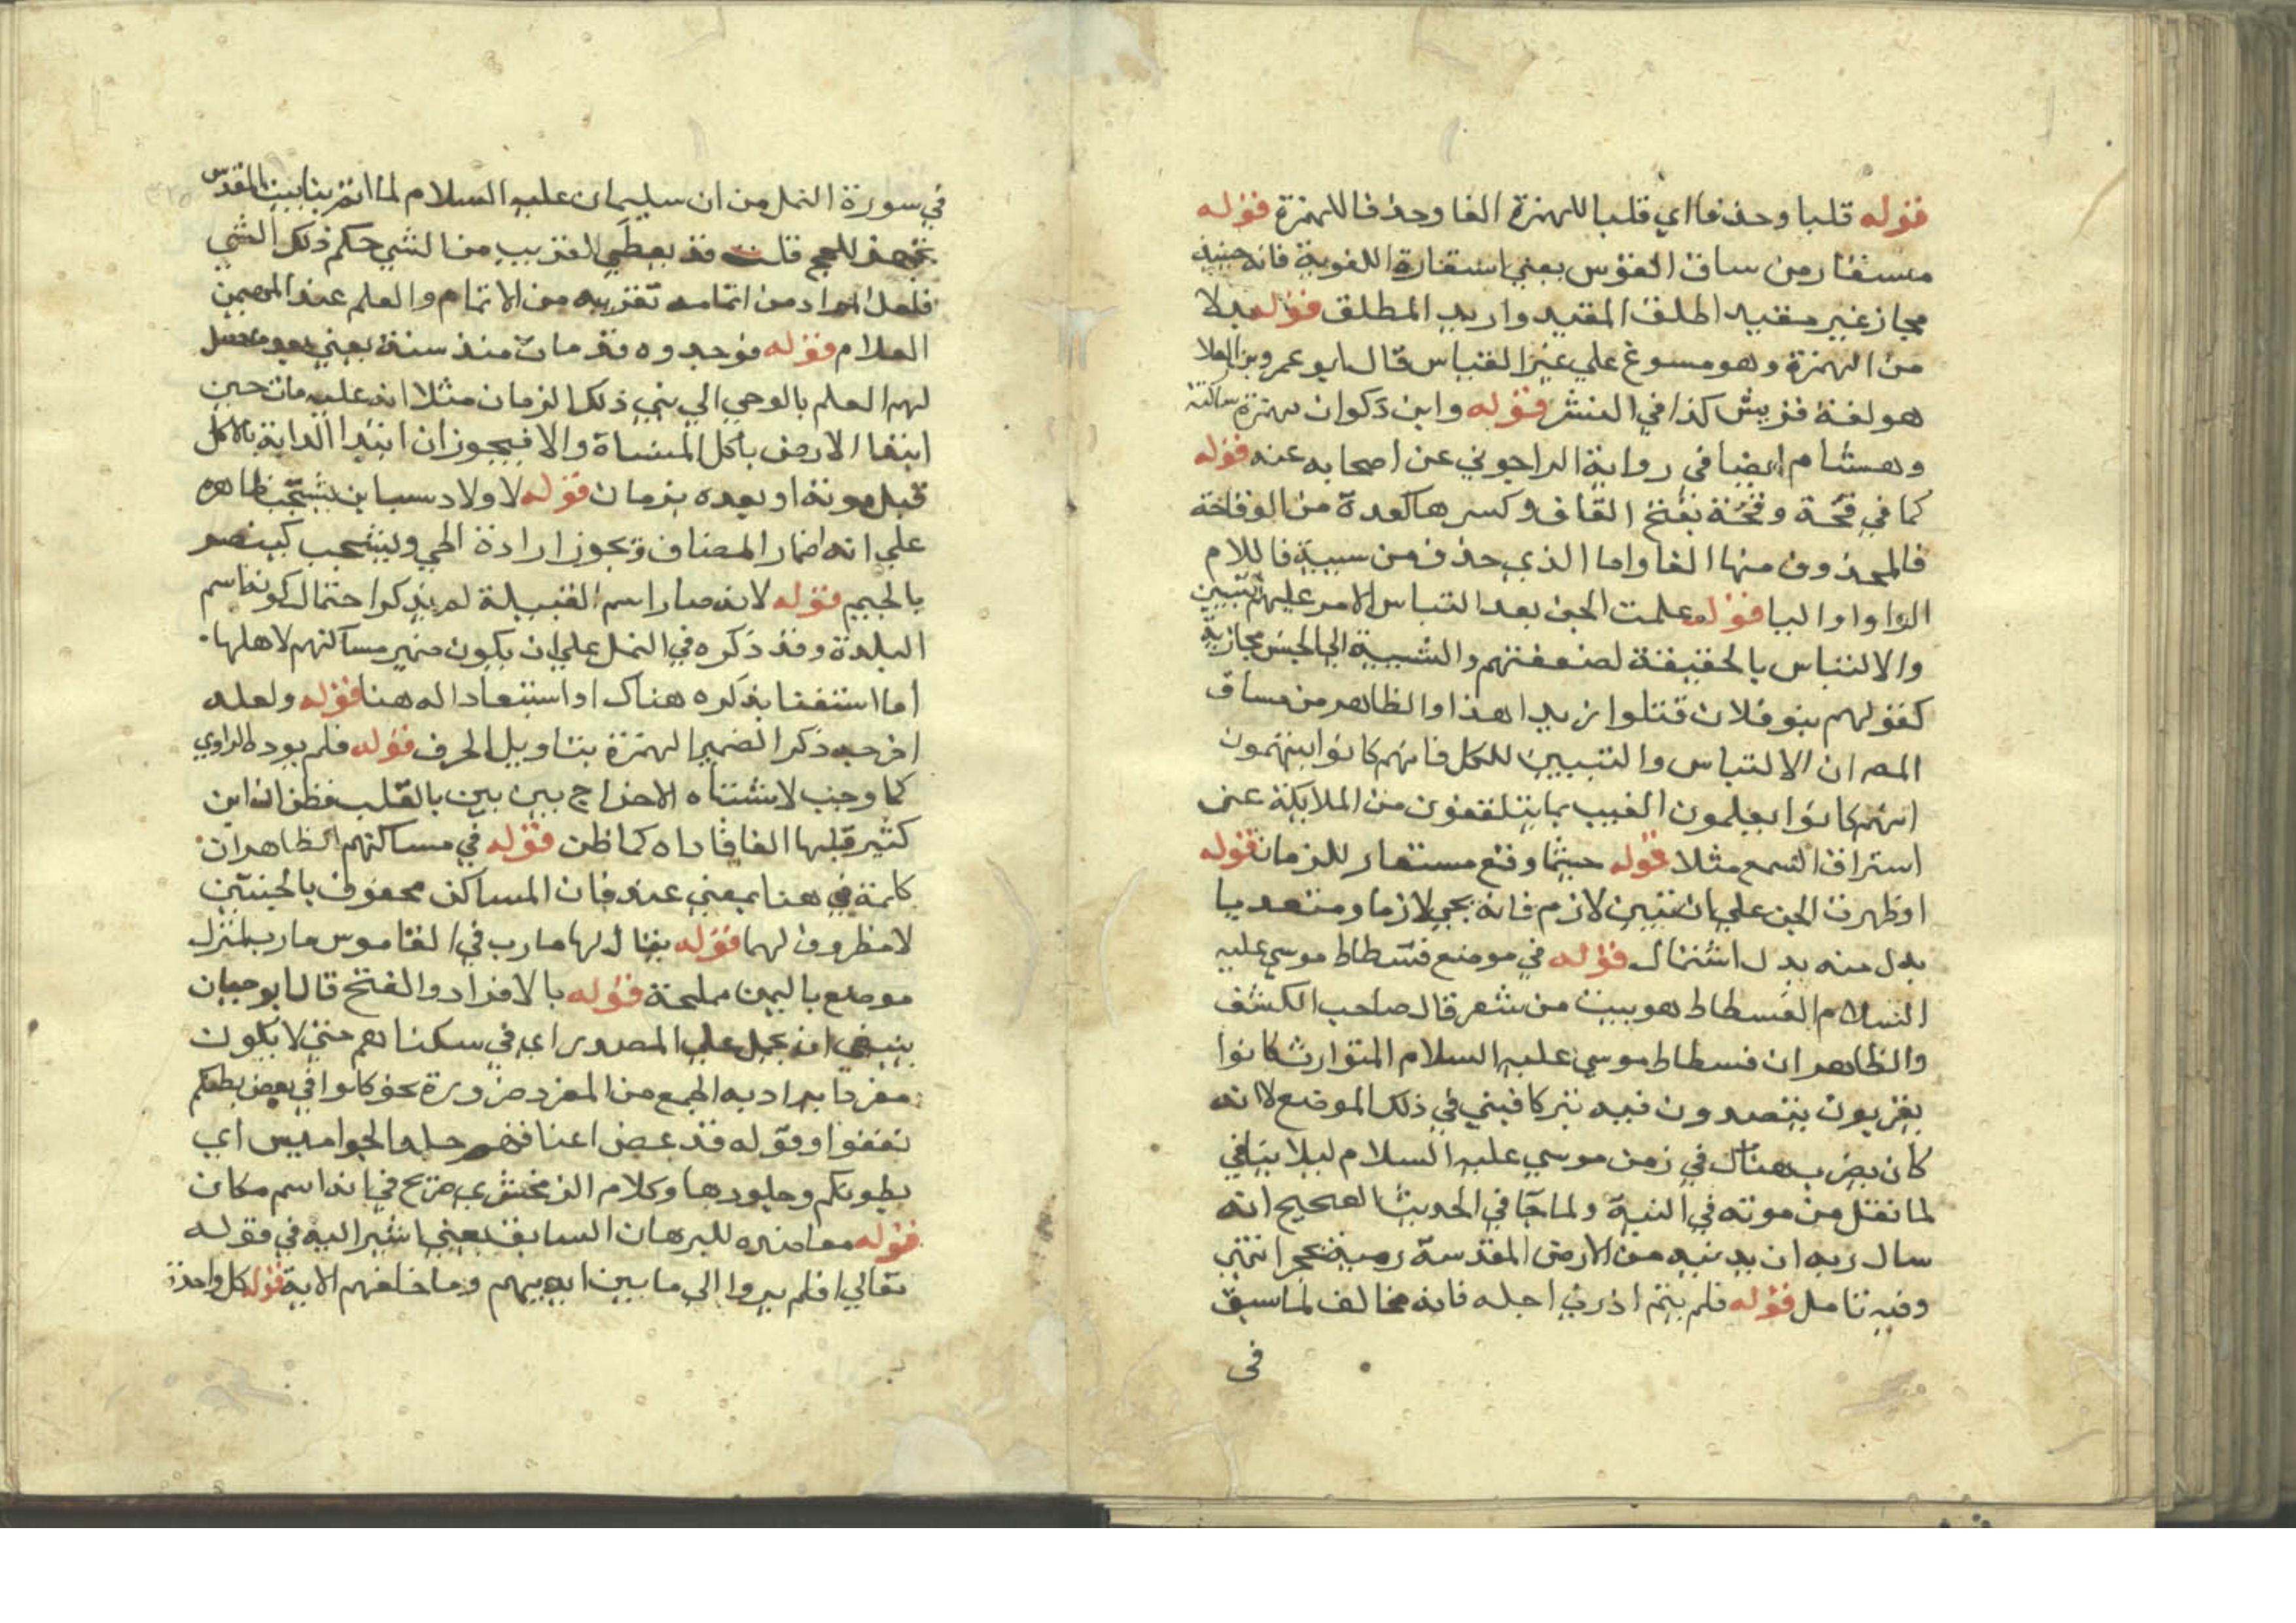 قوله قلبا وحذفا اي قلبا للهمزة الفا وحذفا للهمزة قوله
مستعار من ساق القوس يعني استعارة اللغوية فانه حينئذ
مجاز غير مقيد اطلق المقيد واريد المطلق قوله بدلا
من الهمزة وهو مسوغ علي غير القياس قال ابو عمرو بن العلا
هو لغة قريش كذا في النشر قوله وابن ذكوان بهمزة ساكنة
وهشام ايضا في رواية الداجوني عن اصحابه عنه قوله
كما في قحة وقحة بفتح القاف وكسرها كعدة من الوقاحة
فالمحذوف منها الفا واما الذي حذف من سيية فاللام
الواو او اليا قوله علمت الجن بعد التباس الامر عليهم التبيين
والالتباس بالحقيقة لضعفتهم والنسبة الي الجنس مجازية
كقولهم بنو فلان قتلوا زيدا هذا والظاهر من مساق
المصر ان الالتباس والتبيين للكل فانهم كانوا يتهمون
انهم كانوا يعلمون الغيب بما يتلقفون من الملايكة عنى
استراق السمع مثلا قوله حيثما وقع مستعار للزمان قوله
او ظهرت الجن علي ان تبين لازم فانه يجي لازما ومتعديا
بدل منه بدل اشتمال قوله في موضع فسطاط موسي عليه
السلام الفسطاط هو بيت من شعر قال صاحب الكشف
والظاهر ان فسطاط موسي عليه السلام المتوارث كانوا
يقربون يتعبدون فيه تبركا فبني في ذلك الموضع لا انه
كان يضرب هناك في زمن موسي عليه السلام ليلا ينافي
لما نقل من موته في التيه ولما جا في الحديث الصحيح انه
سال ربه ان يدنيه من الارض المقدسة رمية بحجر انتهي
وفيه تامل قوله فلم يتم اذ دني اجله فانه مخالف لما سبق
في
في سورة النمل من ان سليمان عليه السلام لما اتم بنا بيت المقدس
تجهز للحج قلت قد يعطي القريب من الشي حكم ذلك الشي
فلعل المراد من اتمامه تقريبه من الاتمام والعلم عند المهيمن
العلام قوله فوجدوه قد مات منذ سنة يعني بعد ما حصل
لهم العلم بالوحي الي نبي ذلك الزمان مثلا انه عليه مات حين
ابتدا الارض باكل المنساة والا فيجوز ان ابتدا الدابة بالاكل
قبل موته او بعده بزمان قوله لاولاد سبا بن يشجب ظاهره
علي انه اضمار المضاف ويجوز ارادة الحي ويشجب كينصر
بالجيم قوله لانه صار اسم القبيلة لم يذكر احتمال كونه اسم
البلدة وقد ذكره في النمل علي ان يكون ضمير مساكنهم لاهلها
اما اكتفا بذكره هناك او استبعادا له هنا قوله ولعله
اخرجه ذكر الضمير الهمزة بتاويل الحرف قوله فلم يوده الراوي
كما وجب لاشتباه الاخراج بين بين بالقلب فظن ان ابن
كثير قلبها الفا فاداه كما ظن قوله في مساكنهم الظاهر ان
كلمة في هنا بمعني عند فان المساكن محفوف بالجنتين
لا مظروف لهما قوله يقال لها مارب في القاموس مارب كمنزل
موضع باليمن مملحة قوله بالافراد والفتح قال ابو حيان
ينبغي ان يحمل علي المصدر اي في سكناهم حتي لا يكون
مفردا يراد به الجمع من المفرد ضرورة نحو كلوا في بعض بطنكم
تعفوا وقوله قد عض اعناقهم جلد الجواميس اي
بطونكم وجلودها وكلام الزمخشري صريح في انه اسم مكان
قوله معاضده للبرهان السابق يعني اشير اليه في قوله
تعالي افلم يروا الي ما بين ايديهم وما خلفهم الاية قوله كل واحدة